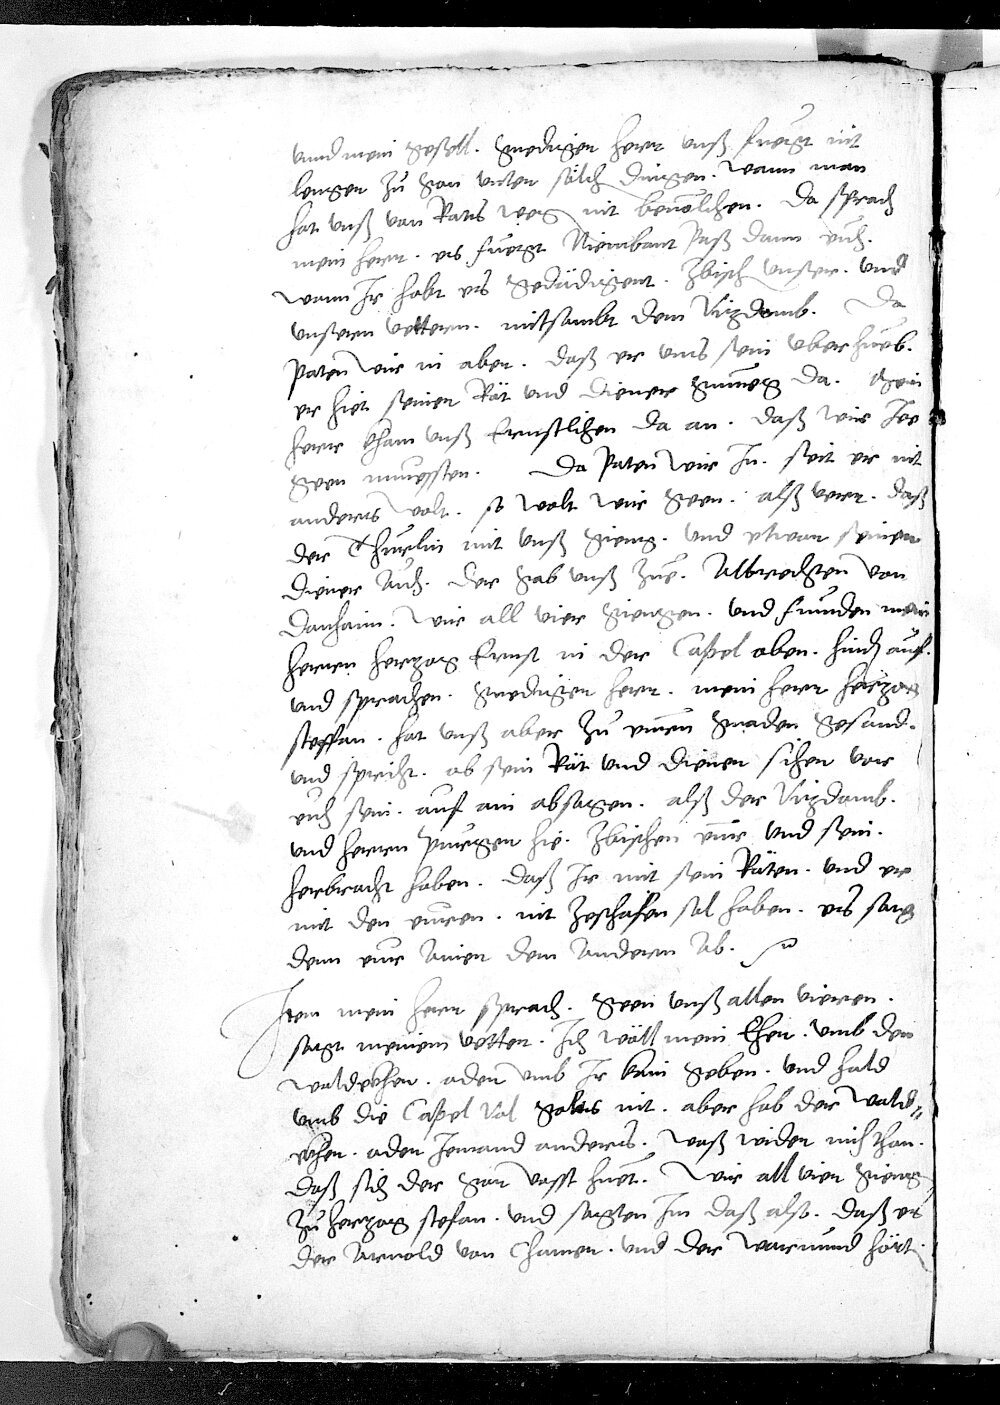 unnd mein gesell. Gnediger herr unß fuegt nit
lenger zu gen unter sölch dingen. wann man
hat unß von Rats weg nit bevolchen. Da sprach
mein herr. es fuegt Niembant paß dann euch.
wann Ir habt es gedädingent. Zbisch unster. und
unsterm vettern. mitsambt dem Vizdomb. Da
paten wir in aber. daß er uns sein uberhueb.
er hiet seiner Rät und diener gnueg da. Mein
herr kham unß Ernstlichen da an. daß wir Ie
geen muessten. Da paten wir In. seit er nit
anders wolt. so wolt wir geen. alß verr. daß
der Thurlin mit unß gieng. und etwer seiner
diener Auch. der gab unß zue. Albrechten von
Danhaim. Wir all vier giengen. und funden mein
herrn herzog Ernst in der Capel oben. hindh auf.
und sprachen. Gnediger herr. mein herr herzog
steffan. hat unß aber zu euren gnaden gesand.
und spricht. ob sein Rät und diener sicher vor
euch sein. auf ain absagen. alß der Vizdomb.
und herrn purger hie. Zbischen eur und sein.
herbracht haben. daß Ir mit sein Räten. und er
mit den euren. nit zeschafen sol haben. es sag
denn eur Ainer dem Anderm Ab.
Item mein herr sprach. Geen unß allen vieren.
sagt meinem vetter. Ich wöll mein Eher. umb den
waldekher. oder umb Ir kain geben. und hald
umb die Capel Vol golts nit. aber hab der wald„
ekher. oder Iemand anders. waß wider mich than.
daß sich der gar vasst huet. Wir all vier gieng
zu herzog stefan. und sagten Im daß also. daß es
der Arnold von Chamer. und der warmund hört.